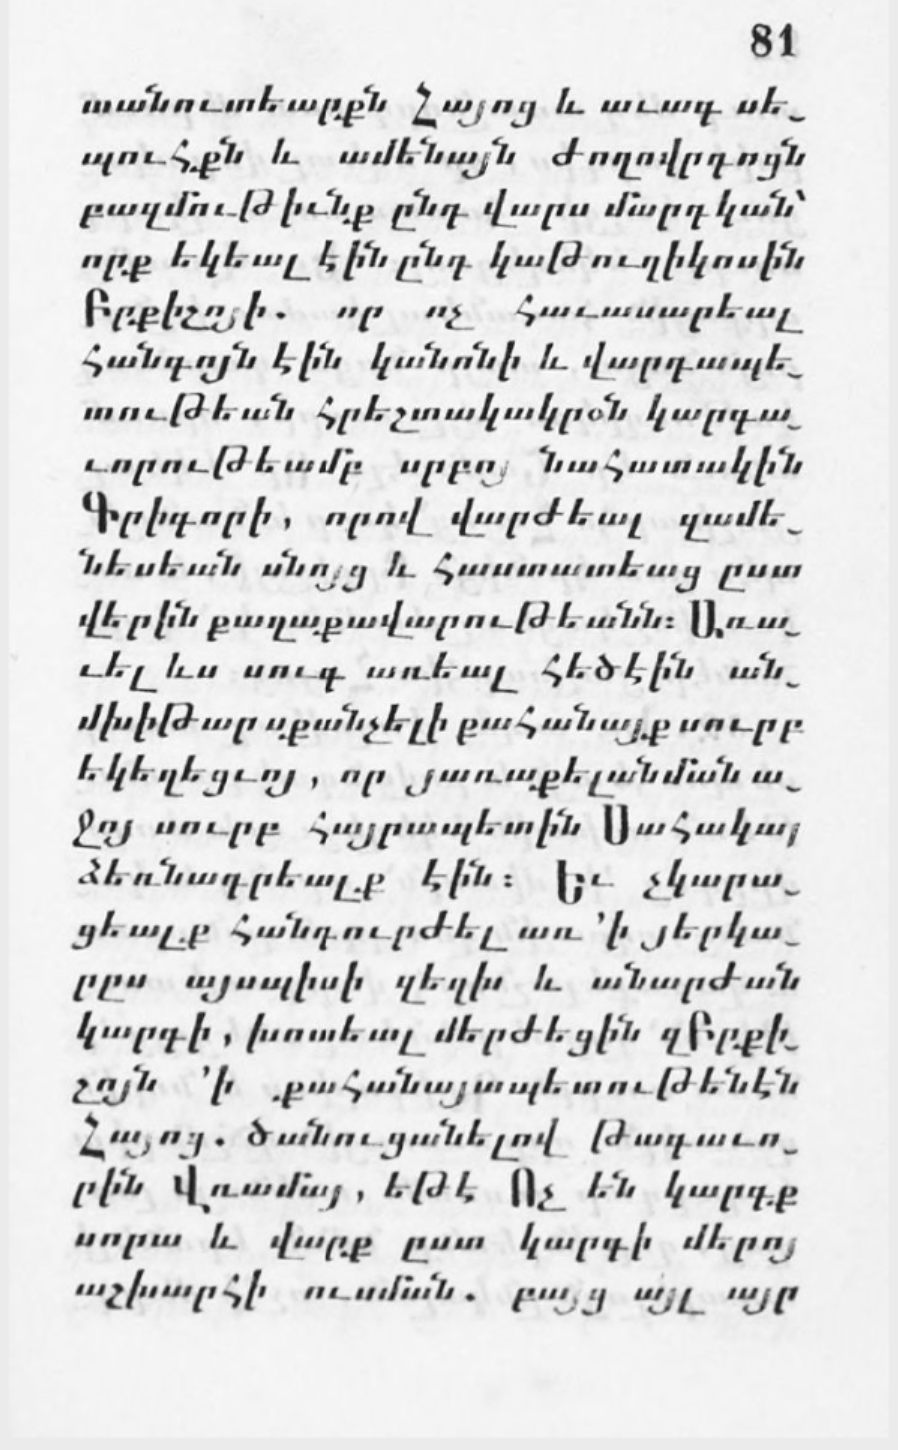 81
տանուտեարքն Հայոց և աւագ սե֊
պուհքն և ամենայն ժողովրդոցն
բազմութիւնք ընդ վարս մարդկան՝
որք եկեալ էին ընդ կաթուղիկոսին
Բրքիշոյի. որ ոչ հաւասարեալ
հանգոյն էին կանոնի և վարդապե֊
տութեան հրեշտակակրօն կարգա֊
ւորութեամբ սրբոյ նահատակին
Գրիգորի, որով վարժեալ զամե֊
նեսեան սնոյց և հաստատեաց ըստ
վերին քաղաքավարութեանն։ Առա֊
ւել ևս սուգ առեալ հեծէին ան֊
մխիթար սքանչելի քահանայք սուրբ
եկեղեցւոյ, որ յառաքելանման ա֊
ջոյ սուրբ հայրապետին Սահակայ
ձեռնադրեալք էին։ Եւ չկարա֊
ցեալք հանդուրժել առ ՚ի յերկա֊
րըս այսպիսի զեղխ և անարժան
կարգի, խոտեալ մերժեցին զԲրքի֊
շոյն ՚ի քահանայապետութենէն
Հայոց. ծանուցանելով թագաւո֊
րին Վռամայ, եթէ Ոչ են կարգք
սորա և վարք ըստ կարգի մերոյ
աշխարհի ուսման. բայց այլ այր